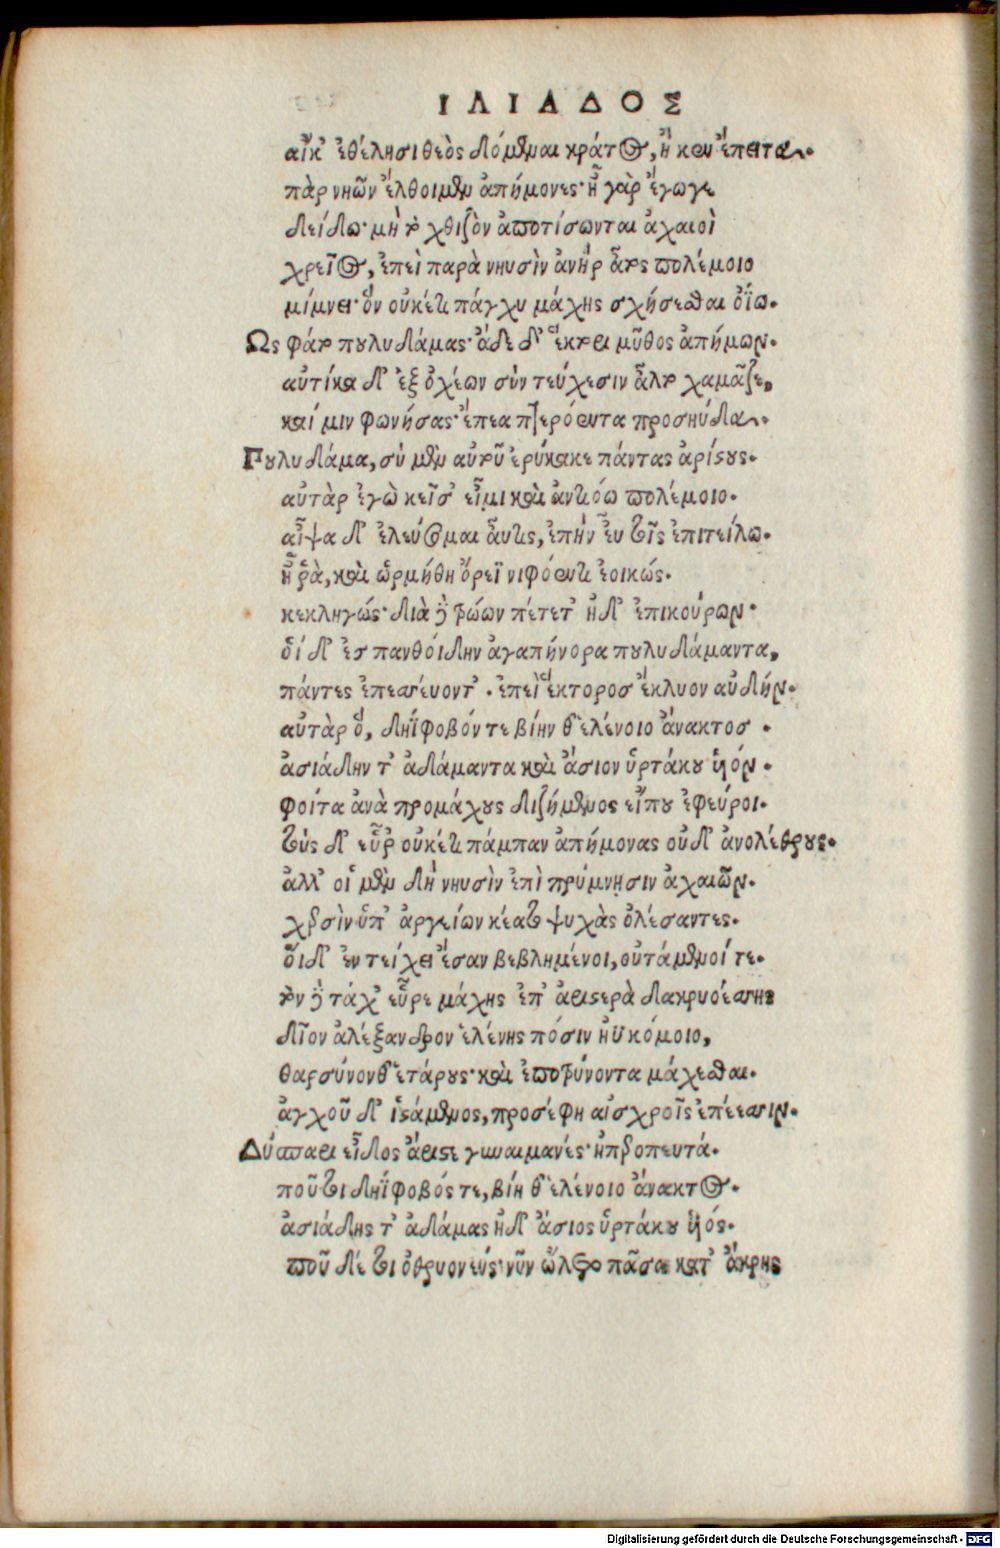 ΙΛΙΑΔΟΣ
αἴκ' ἐθέλησι θεὸς δόμεναι κράτος, ἤ κεν ἔπειτα.
πὰρ νηῶν ἔλθοιμεν ἀπήμονες· ἦ γὰρ ἔγωγε
δείδω· μὴ τὸ χθιζὸν ἀποτίσωνται ἀχαιοὶ
χρεῖος, ἐπεὶ παρὰ νηυσὶν ἀνὴρ ἆτος πολέμοιο
μίμνει· ὃν οὐκέτι πάγχυ μάχης σχήσεσθαι ὀΐω.
Ως φάτο πουλυδάμας· ἅδε δ' ἕκτορι μῦθος ἀπήμων.
αὐτίκα δ' ἐξ ὀχέων σὺν τεύχεσιν ἆλτο χαμᾶζε,
καί μιν φωνήσας· ἔπεα πτερόεντα προσηύδα.
Πουλυδάμα, σὺ μὲν αὐτοῦ ἐρύκακε πάντας ἀρίστους.
αὐτὰρ ἐγὼ κεῖσ' εἶμι καὶ ἀντιόω πολέμοιο.
αἶψα δ' ἐλεύσομαι αὖτις, ἐπὴν εὖ τοῖς ἐπιτείλω.
ἦ ῥὰ, καὶ ὡρμήθη ὄρεϊ νιφόεντι ἐοικώς.
κεκληγώς· διὰ δὲ τρώων πέτετ' ἠδ' ἐπικούρων·
οἱ δ' ἐσ πανθοίδην ἀγαπήνορα πουλυδάμαντα,
πάντες ἐπεσσεύοντ'. ἐπεὶ ἕκτοροσ ἔκλυον αὐδήν.
αὐτὰρ ὁ, δηΐφοβόν τε βίην θ' ἑλένοιο ἄνακτοσ.
ἀσιάδην τ' ἀδάμαντα καὶ ἄσιον ὑρτάκου υἱόν.
φοίτα ἀνὰ προμάχους διζήμενος εἴπου ἐφεύροι.
τοὺς δ' εὗρ' οὐκέτι πάμπαν ἀπήμονας οὐδ' ἀνολέθρους.
ἀλλ' οἱ μὲν δὴ νηυσὶν ἐπὶ πρύμνησιν ἀχαιῶν.
χερσὶν ὑπ' ἀργείων κέατο ψυχὰς ὀλέσαντες.
οἳ δ' ἐν τείχει ἔσαν βεβλημένοι, οὐτάμενοί τε.
τὸν δὲ τάχ' εὗρε μάχης ἐπ' ἀριστερὰ δακρυοέσσης
δῖον ἀλέξανδρον ἑλένης πόσιν ἠϋκόμοιο,
θαρσύνονθ' ἑτάρους· καὶ ἐποτρύνοντα μάχεσθαι.
ἀγχοῦ δ' ἱστάμενος, προσέφη αἰσχροῖς ἐπέεσσιν.
Δύσπαρι εἶδος ἄριστε γυναιμανές· ἠπεροπευτά.
ποῦ τοι δηΐφοβός τε, βίη θ' ἑλένοιο ἄνακτος.
ἀσιάδης τ' ἀδάμας ἠδ' ἄσιος ὑρτάκου υἱός.
ποῦ δέ τοι ὀθρυονεύς· νῦν ὤλετο πᾶσα κατ' ἄκρης
Digitalisierung gefördert durch die Deutsche Forschungsgemeinschaft - DFG